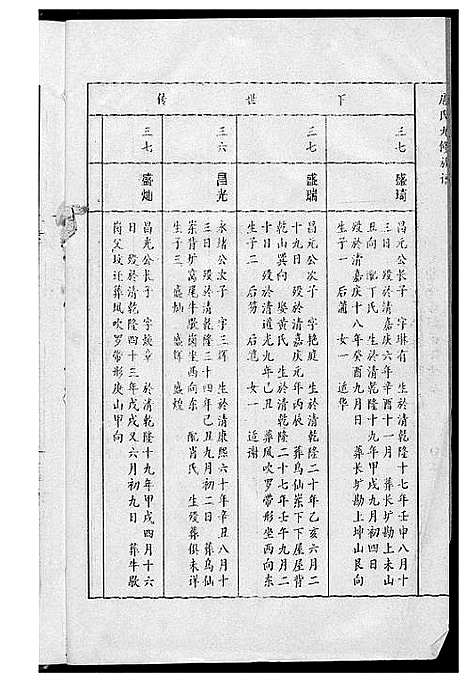 氏九修族谱
下世传
三七
盛琦
昌元公长子 字琳有 生於清乾隆十七年壬申八月十
三日 殁於清嘉庆六年辛酉十一月 葬长圹勘上未山
丑向 配丁氏 生於清乾隆十九年甲戌九月初四日
殁於清嘉庆十八年癸酉九月日 葬长圹勘上坤山艮向
生子一 后蒲 女一 适华
三七
盛瑞
昌元公次子 字艳庭 生於清乾隆二十年乙亥六月二
十九日 殁於清嘉庆元年丙辰 葬乌仙岽下下屋屋背
乾山巽向 娶黄氏 生於清乾隆二十七年壬午九月二
十日 殁於清道光九年己丑 葬凤吹罗带形坐西向东
生子二 后芴 后 女一 适谢
三六
昌光
永绪公次子 字三辉 生於清康熙六十年辛丑八月十
三日 殁於清乾隆三十四年己丑九月初二日 葬乌仙
岽背圹窝尾牛歇岗坐西向东 配肖氏 生殁葬俱未详
生子三 盛灿 盛辉 盛煌
三七
盛灿
昌光公长子 字焕章 於清乾隆十九年甲戌四月十六
日 殁於清乾隆四十三年戊戌又六月初九日 葬牛歇
岗父坟迁葬凤吹罗带形庚山甲向